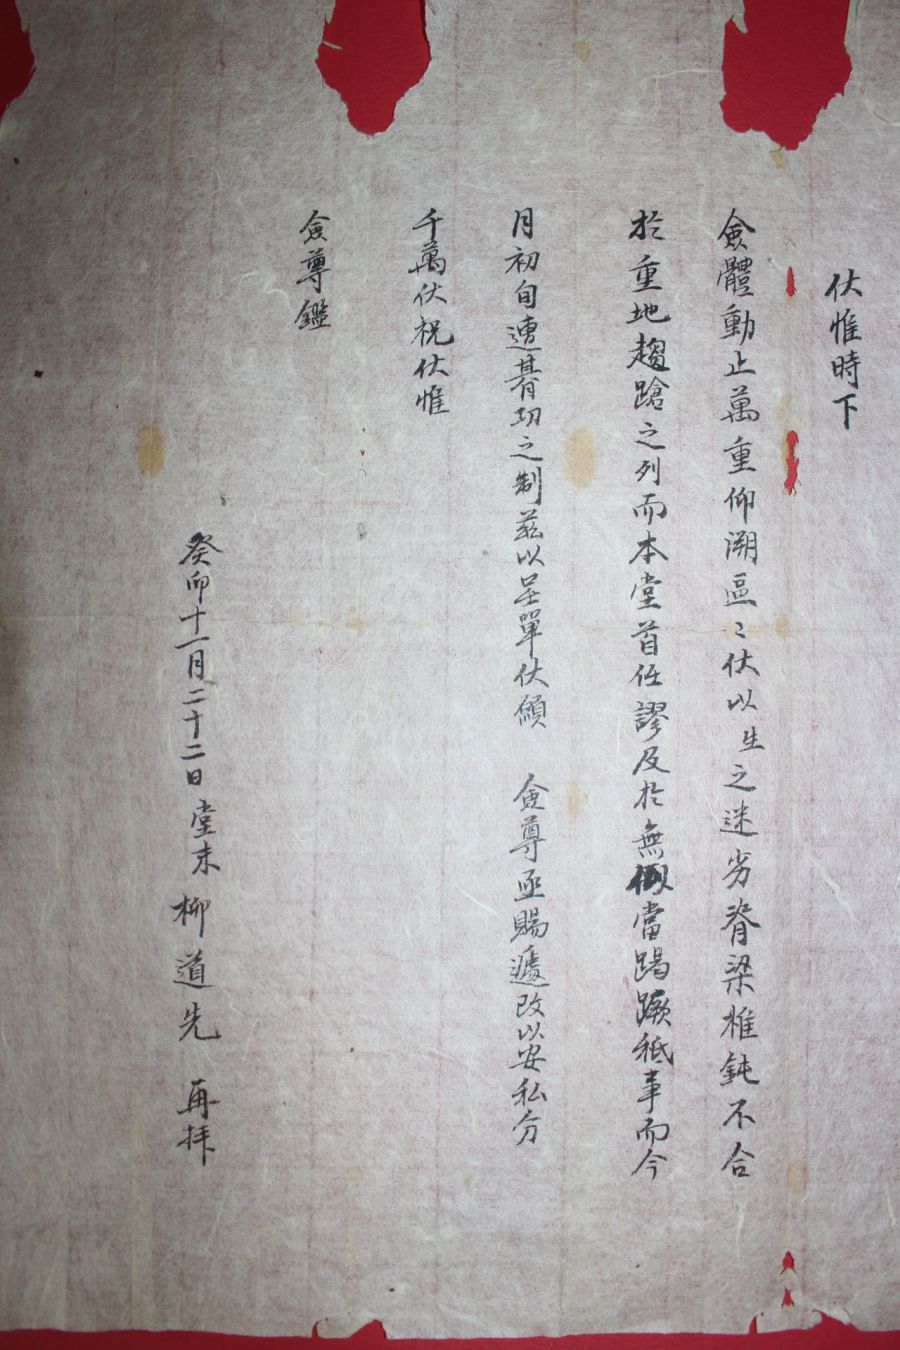 伏惟時下
僉體動止萬重仰溯區〻伏以生之迷劣脊梁椎鈍不合
於重地趨蹌之列而本堂首任謬及於無似當蹋蹶祗事而今
月初旬遭朞功之制玆以呈單伏願 僉尊亟賜遞改以安私分
千萬伏祝伏惟
僉尊鑑
癸卯十一月二十二日堂末柳道先 再拜